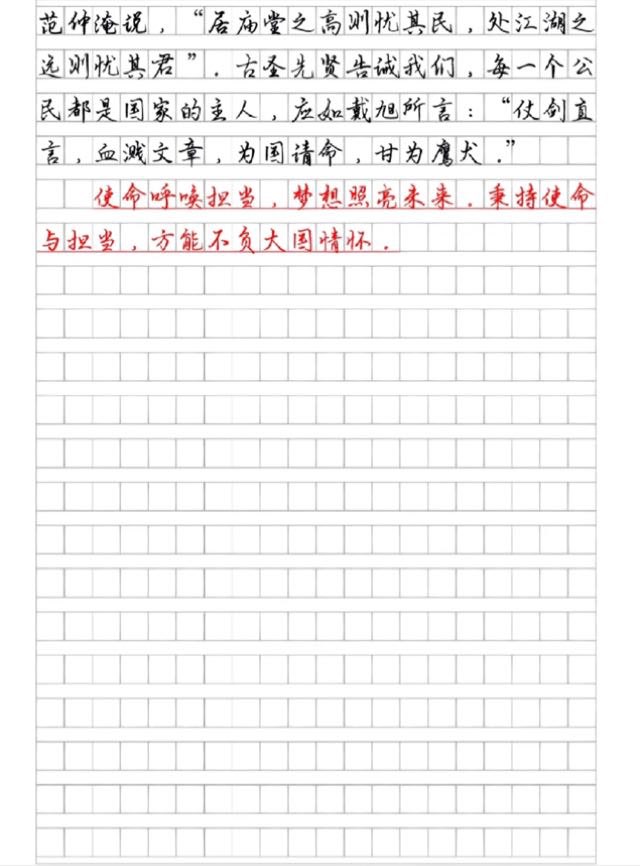 范仲淹说，“居庙堂之高则忧其民，处江湖之
远则忧其君”．古圣先贤告诫我们，每一个公
民都是国家的主人，应如戴旭所言：“仗剑直
言，血溅文章，为国请命，甘为鹰犬．”
使命呼唤担当，梦想照亮未来．秉持使命
与担当，方能不负大国情怀．